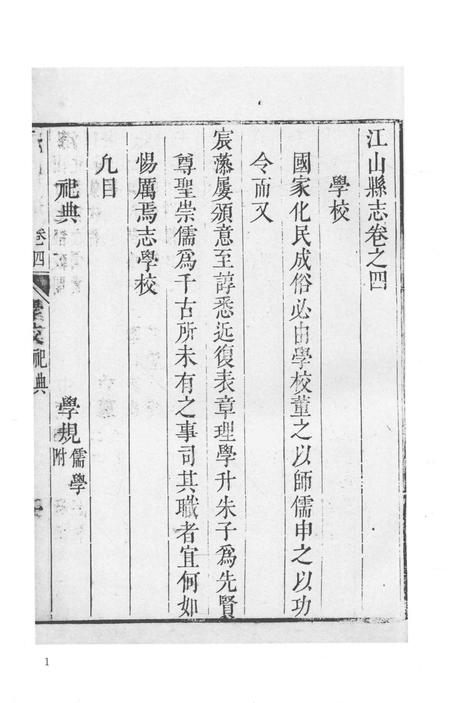 江山縣志卷之四
學校
國家化民成俗必由學校董之以師儒申之以功
令而又
宸藻屢頒意至諄悉近復表章理學升朱子爲先賢
尊聖崇儒爲千古所未有之事司其職者宜何如
惕厲焉志學校
凡目
祀典 學規 儒學附
卷四 學校 祀典 一
1